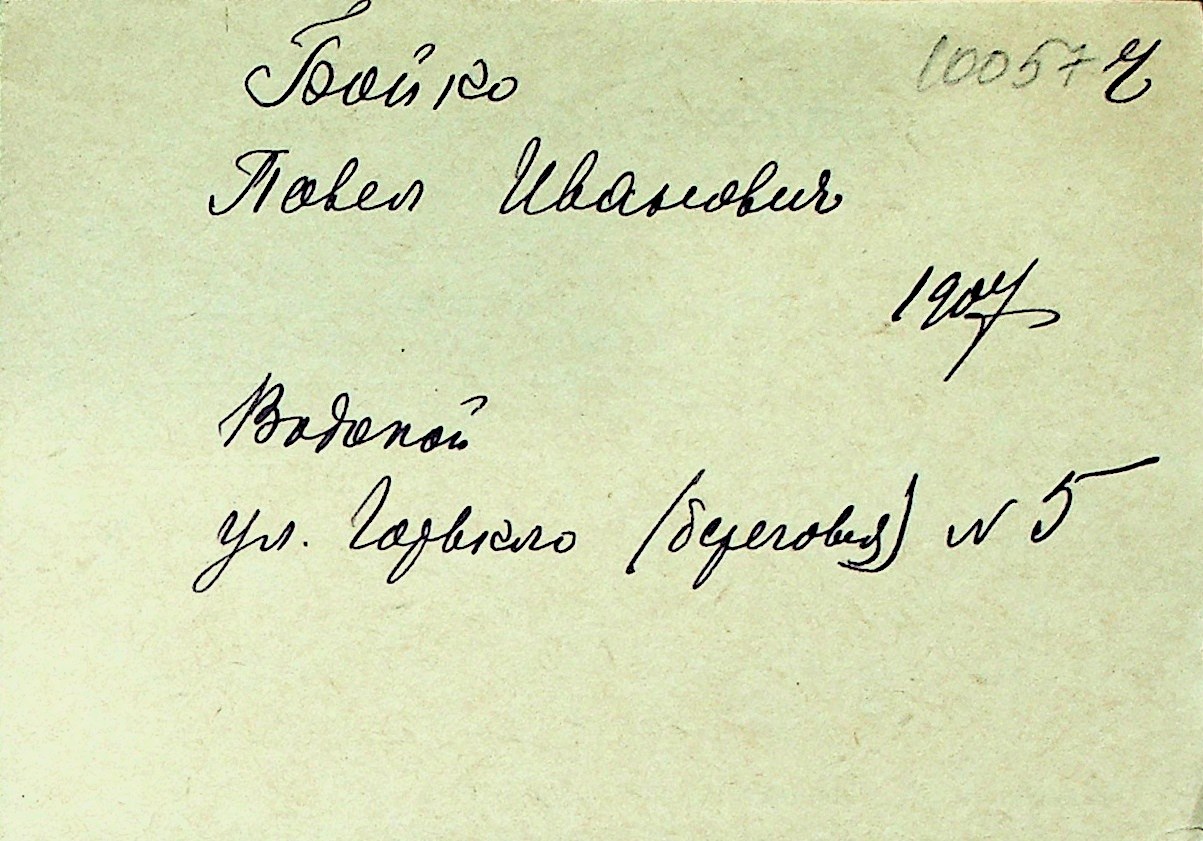 Бойко 10057 Ч
Павел Иванович
1907
Водопой
ул. Горького (береговая) N 5